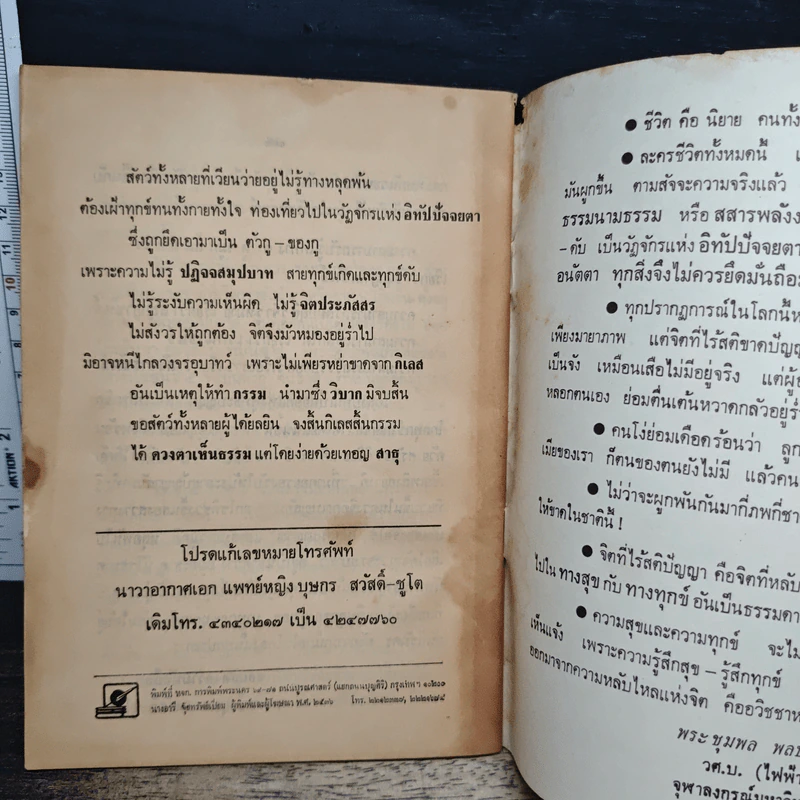 สัตว์ทั้งหลายที่เวียนว่ายอยู่ไม่รู้ทางหลุดพ้น
ต้องเฝ้าทุกข์ทนทั้งกายทั้งใจ ท่องเที่ยวไปในวัฏจักรแห่ง อิทัปปัจจยตา
ซึ่งถูกยึดเอามาเป็น ตัวกู - ของกู
เพราะความไม่รู้ ปฏิจจสมุปบาท สายทุกข์เกิดและทุกข์ดับ
ไม่รู้ระงับความเห็นผิด ไม่รู้ จิตประภัสสร
ไม่สังวรให้ถูกต้อง จิตจึงมัวหมองอยู่ร่ำไป
มิอาจหนีไกลวงจรอุบาทว์ เพราะไม่เพียรหย่าขาดจาก กิเลส
อันเป็นเหตุให้ทำ กรรม นำมาซึ่ง วิบาก มิจบสิ้น
ขอสัตว์ทั้งหลายผู้ได้ยลยิน จงสิ้นกิเลสสิ้นกรรม
ได้ ดวงตาเห็นธรรม แต่โดยง่ายด้วยเทอญ สาธุ
โปรดแก้เลขหมายโทรศัพท์
นาวาอากาศเอก แพทย์หญิง บุษกร สวัสดิ์-ชูโต
เดิมโทร. ๔๓๔๐๒๑๗ เป็น ๔๒๔๗๗๖๐
พิมพ์ที่ หจก. การพิมพ์พระนคร ถนนบูรณศาสตร์ (แยกถนนบุญศิริ) กรุงเทพฯ
ผู้พิมพ์และผู้โฆษณา พ.ศ. ๒๕๓๖ โทร.
● ชีวิต คือ นิยาย คนทั้ง
● ละครชีวิตทั้งหมดนี้
มันผูกขึ้น ตามสัจจะความจริงแล้ว
ธรรมนามธรรม หรือ สสารพลังง
-ดับ เป็นวัฏจักรแห่ง อิทัปปัจจยตา
อนัตตา ทุกสิ่งจึงไม่ควรยึดมั่นถือม
● ทุกปรากฏการณ์ในโลกนี้ห
เพียงมายาภาพ แต่จิตที่ไร้สติขาดปัญญ
เป็นจัง เหมือนเสือไม่มีอยู่จริง แต่ผู้
หลอกตนเอง ย่อมตื่นเต้นหวาดกลัวอยู่ร่ำ
● คนโง่ย่อมเดือดร้อนว่า ลูก
เมียของเรา ก็ตนของตนยังไม่มี แล้วคน
● ไม่ว่าจะผูกพันกันมากี่ภพกี่ชา
ให้ขาดในชาตินี้ !
● จิตที่ไร้สติปัญญา คือจิตที่หลับ
ไปใน ทางสุข กับ ทางทุกข์ อันเป็นธรรมดา
● ความสุขและความทุกข์ จะไม
เห็นแจ้ง เพราะความรู้สึกสุข - รู้สึกทุกข์
ออกมาจากความหลับใหลแห่งจิต คืออวิชชาห
พระ ชุมพล พลป
วศ.บ. (ไฟฟ้า
จุฬาลงกรณ์มหาวิ